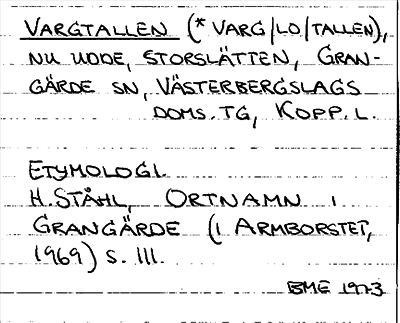 VARGTALLEN (* VARG/LO/TALLEN),
NU UDDE, STORSLÄTTEN, GRAN-
GÄRDE SN, VÄSTERBERGSLAGS
DOMS. TG, KOPP. L.
ETYMOLOGI.
H. STÅHL, ORTNAMN I
GRANGÄRDE (I ARMBORSTET,
1969) S. 111.
BME 1973